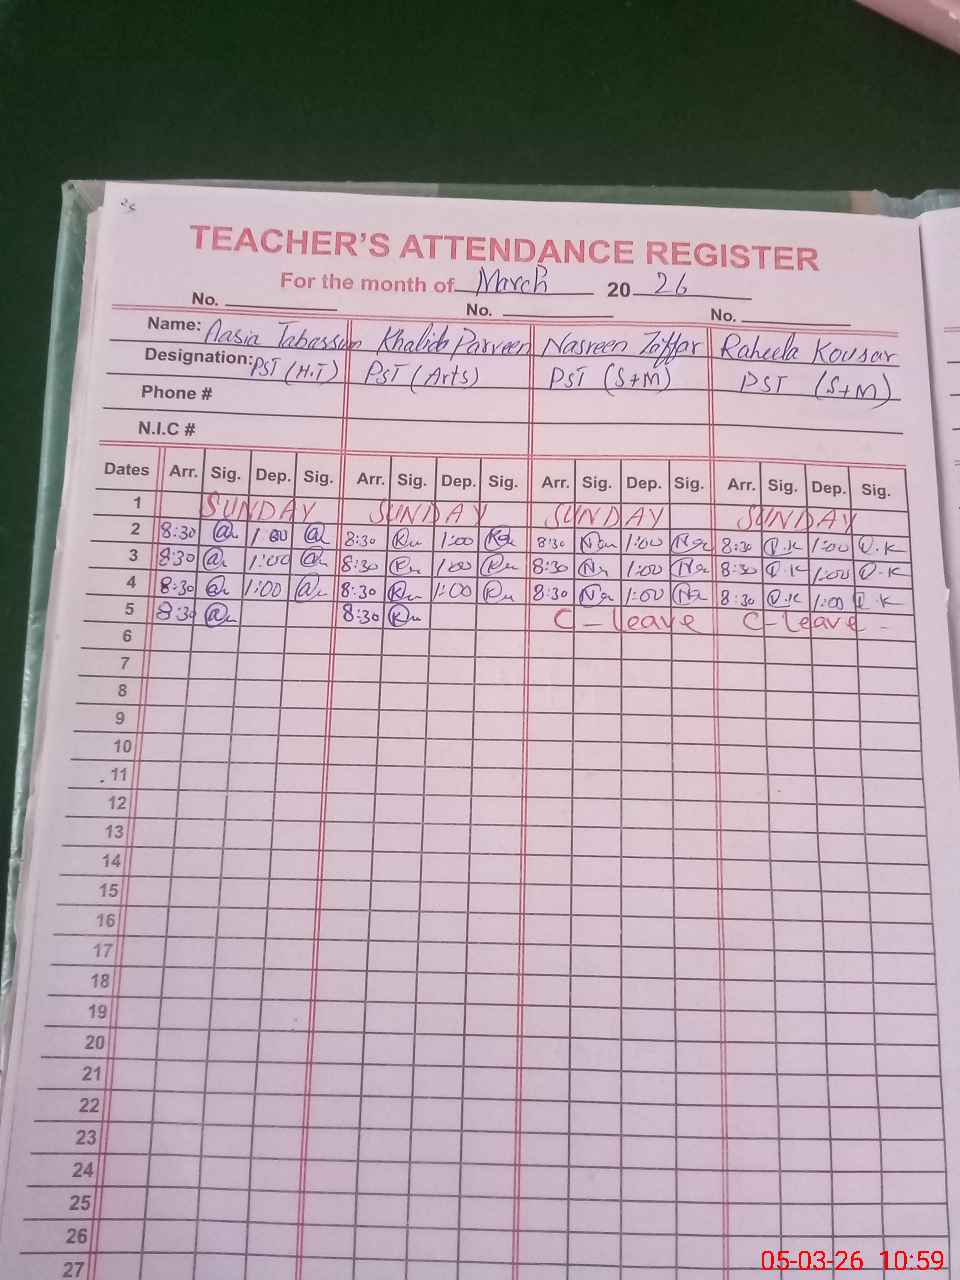 25
TEACHER'S ATTENDANCE REGISTER
For the month of March 20 26
No. No. No.
Name: Aasia Tabassum Khalida Parveen Nasreen Zaffar Raheela Kousar
Designation: PST (H.T) PST (Arts) PST (S+M) PST (S+M)
Phone #
N.I.C #
Dates Arr. Sig. Dep. Sig. Arr. Sig. Dep. Sig. Arr. Sig. Dep. Sig. Arr. Sig. Dep. Sig.
1 SUNDAY SUNDAY SUNDAY SUNDAY
2 8:30 1:00 8:30 1:00 8:30 1:00 8:30 R.K 1:00 R.K
3 8:30 1:00 8:30 1:00 8:30 1:00 8:30 R.K 1:00 R.K
4 8:30 1:00 8:30 1:00 8:30 1:00 8:30 R.K 1:00 R.K
5 8:30 8:30 C-leave C-leave
6
7
8
9
10
11
12
13
14
15
16
17
18
19
20
21
22
23
24
25
26
27
05-03-26 10:59